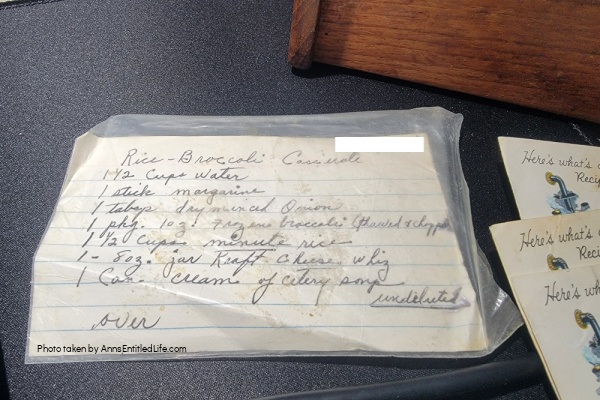 Rice-Broccoli Casserole
1 1/2 Cups Water
1 stick margarine
1 tabsp dry minced Onion
1 pkg. 10 oz. frozene broccoli (thawed & chopped
1 1/2 Cups minute rice
1 - 8oz. jar Kraft Cheese Whiz
1 Can cream of celery soup
undiluted
over
Here's what's
Recip
Here's what's
Recip
Here's wh
Photo taken by AnnsEntitledLife.com